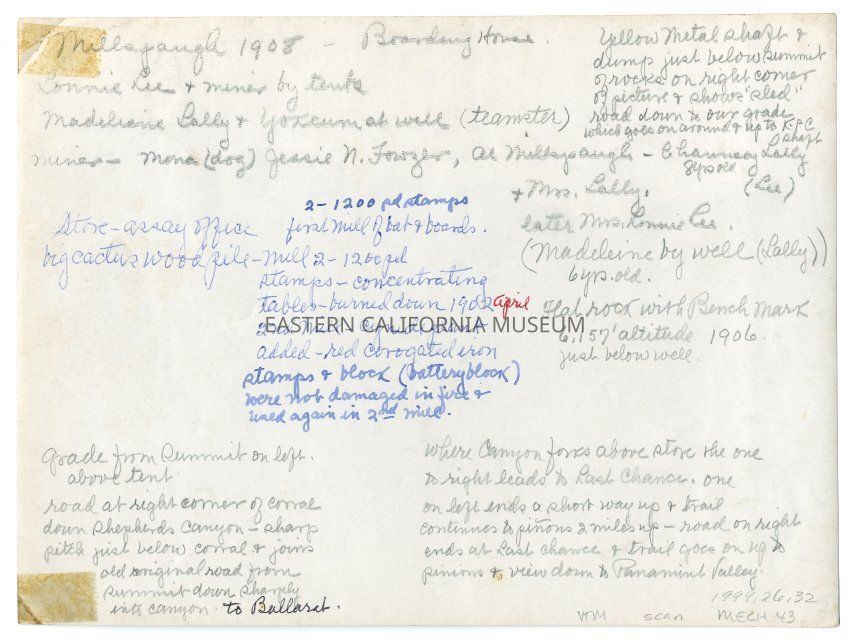 Millspaugh 1908 - Boarding House.
Lonnie Lee & miner by tent
Madeleine Lally & Yokeum at well (teamster)
miner - Mona (dog) Jessie N. Fowzer, at Millspaugh - Chauncey Lally
8 yrs old
& Mrs. Lally. (Lee)
later Mrs. Lonnie Lee.
(Madeleine by well (Lally))
6 yrs. old.
Flat rock with Bench Mark
6,157' altitude 1906.
just below well.
Yellow Metal shaft &
dump just below summit
of rocks on right corner
of picture & shows "sled"
road down to our grade
which goes on around & up to K.P.C
shaft
2 - 1200 pd stamps
Store - assay office first mill of bat & boards.
big cactus wood pile - mill 2 - 1200 pd
stamps - concentrating
tables - burned down 1902 april
EASTERN CALIFORNIA MUSEUM
2nd mill - cyanide plant
added - red corogated iron
stamps & block (battery block)
were not damaged in fire &
used again in 2nd mill.
grade from summit on left.
above tent
road at right corner of corral
down Shepherds Canyon - sharp
pitch just below corral & joins
old original road from
summit down sharply
into canyon. to Ballarat.
where Canyon forks above store the one
to right leads to Last Chance. one
on left ends a short way up & trail
continues to piñons 2 miles up - road on right
ends at Last Chance & trail goes on up to
pinions & view down to Panamint Valley.
1999.26.32
VHM scan MECH 43